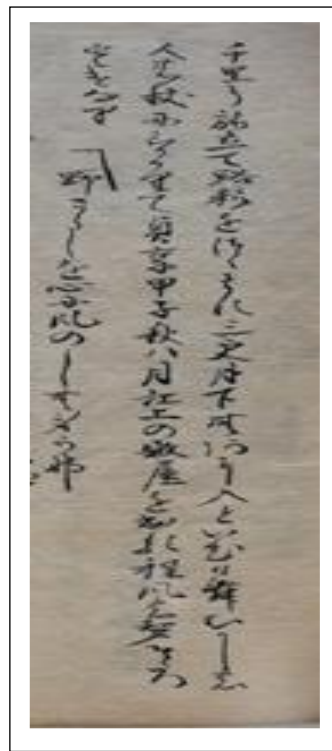 千里に旅立て路粮をつゝます三更月下無何に入と云けむむかしの
人の杖にすかりて貞享甲子秋八月江上の破屋を出る程風の声そゝろ
さむけ也
野さらしを心に風のしむ身かな